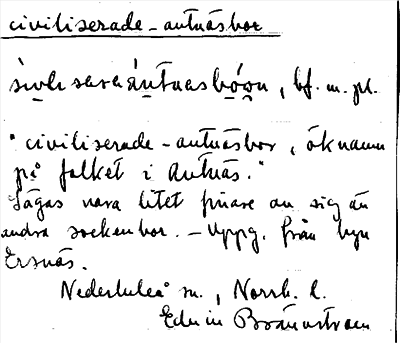 civiliserade-antnäsbor
sivliserada ántnasbóọrn, bf. m. pl.
"civiliserade-antnäsbor, öknamn
på folket i Antnäs."
Sägas vara litet finare av sig än
andra sockenbor. - Uppg. från byn
Ersnäs.
Nederluleå sn., Norrb. l.
Edvin Brännström